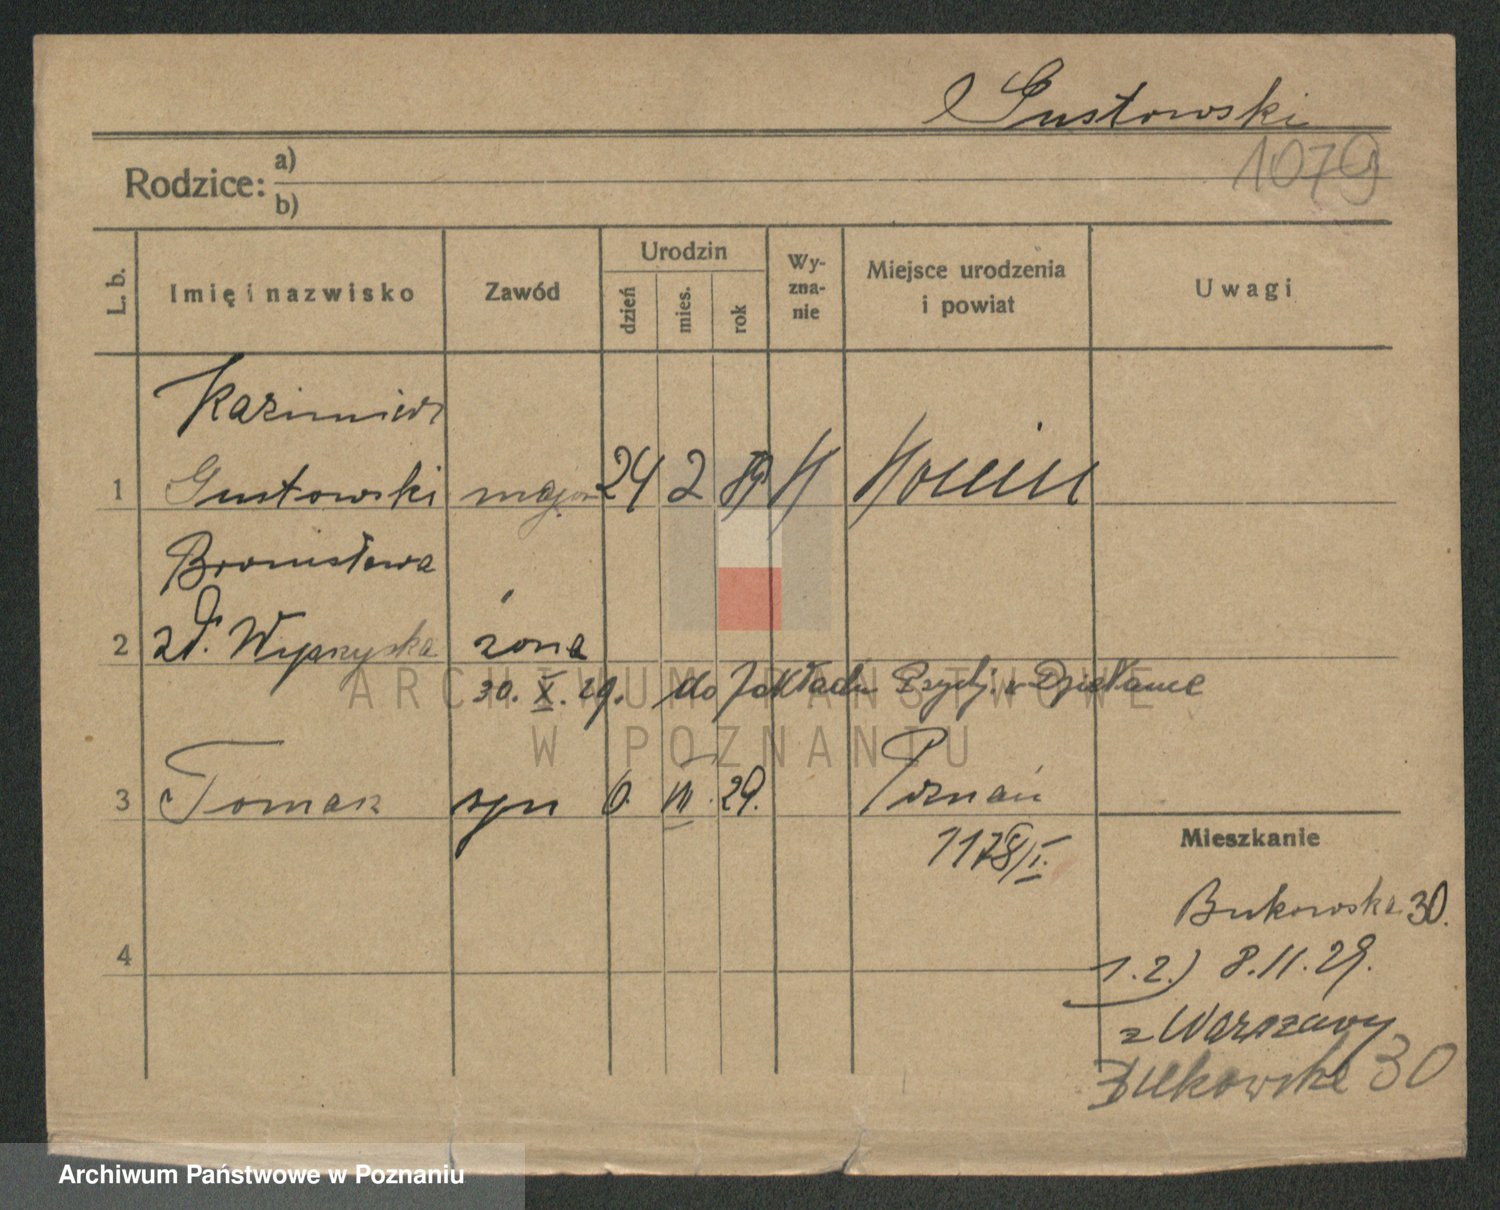 Gustowski
1079
Rodzice: a)
b)
L. b.
Imię i nazwisko
Zawód
Urodzin
dzień
mies.
rok
Wy-
zna-
nie
Miejsce urodzenia
i powiat
Uwagi
Kazimierz
1 Gustowski major 24 2 89 K Konin
Bronisława
2 zd. Wyprzyska żona
30. X. 29. do Zakładu w Dziekance
3 Tomasz syn 6. VII. 29. Poznań
1178/I.
4
Mieszkanie
Bukowska 30.
1.2.) 8.11.29.
z Warszawy
Bukowska 30
ARCHIWUM PAŃSTWOWE
W POZNANIU
Archiwum Państwowe w Poznaniu